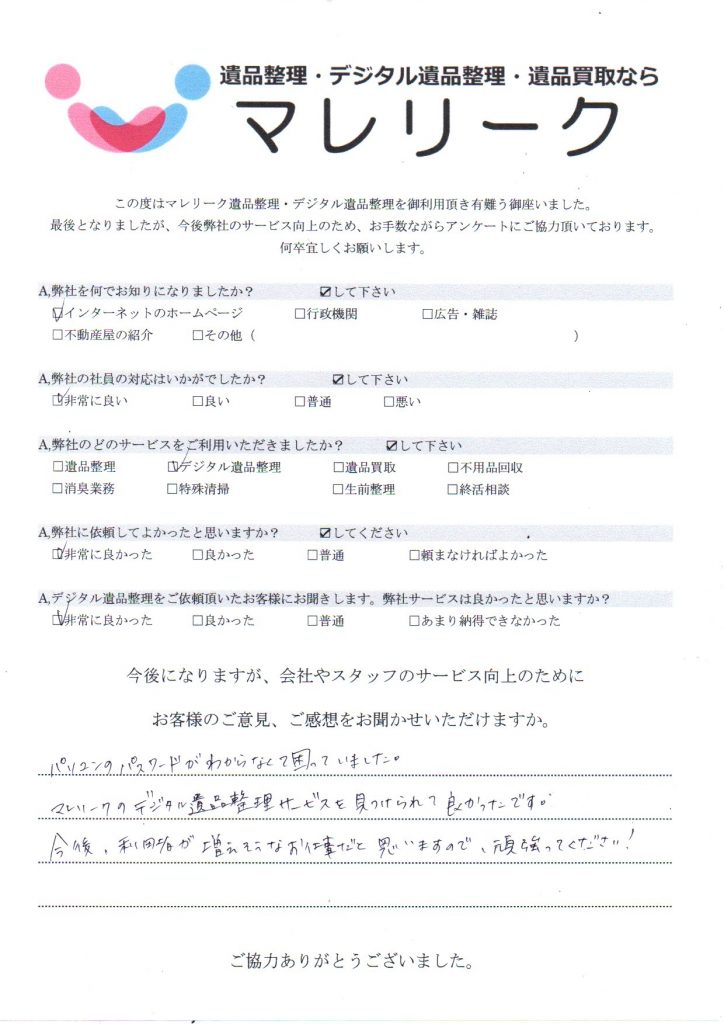 遺品整理・デジタル遺品整理・遺品買取なら
マレリーク
この度はマレリーク遺品整理・デジタル遺品整理を御利用頂き有難う御座いました。
最後となりましたが、今後弊社のサービス向上のため、お手数ながらアンケートにご協力頂いております。
何卒宜しくお願いします。
A,弊社を何でお知りになりましたか？ ☑して下さい
☑インターネットのホームページ □行政機関 □広告・雑誌
□不動産屋の紹介 □その他（ ）
A,弊社の社員の対応はいかがでしたか？ ☑して下さい
☑非常に良い □良い □普通 □悪い
A,弊社のどのサービスをご利用いただきましたか？ ☑して下さい
□遺品整理 ☑デジタル遺品整理 □遺品買取 □不用品回収
□消臭業務 □特殊清掃 □生前整理 □終活相談
A,弊社に依頼してよかったと思いますか？ ☑してください
☑非常に良かった □良かった □普通 □頼まなければよかった
A,デジタル遺品整理をご依頼頂いたお客様にお聞きします。弊社サービスは良かったと思いますか？
☑非常に良かった □良かった □普通 □あまり納得できなかった
今後になりますが、会社やスタッフのサービス向上のために
お客様のご意見、ご感想をお聞かせいただけますか。
パソコンのパスワードがわからなくて困っていました。
マレリークのデジタル遺品整理サービスを見つけられて良かったです。
今後、利用者が増えそうなお仕事だと思いますので、頑張ってください！
ご協力ありがとうございました。